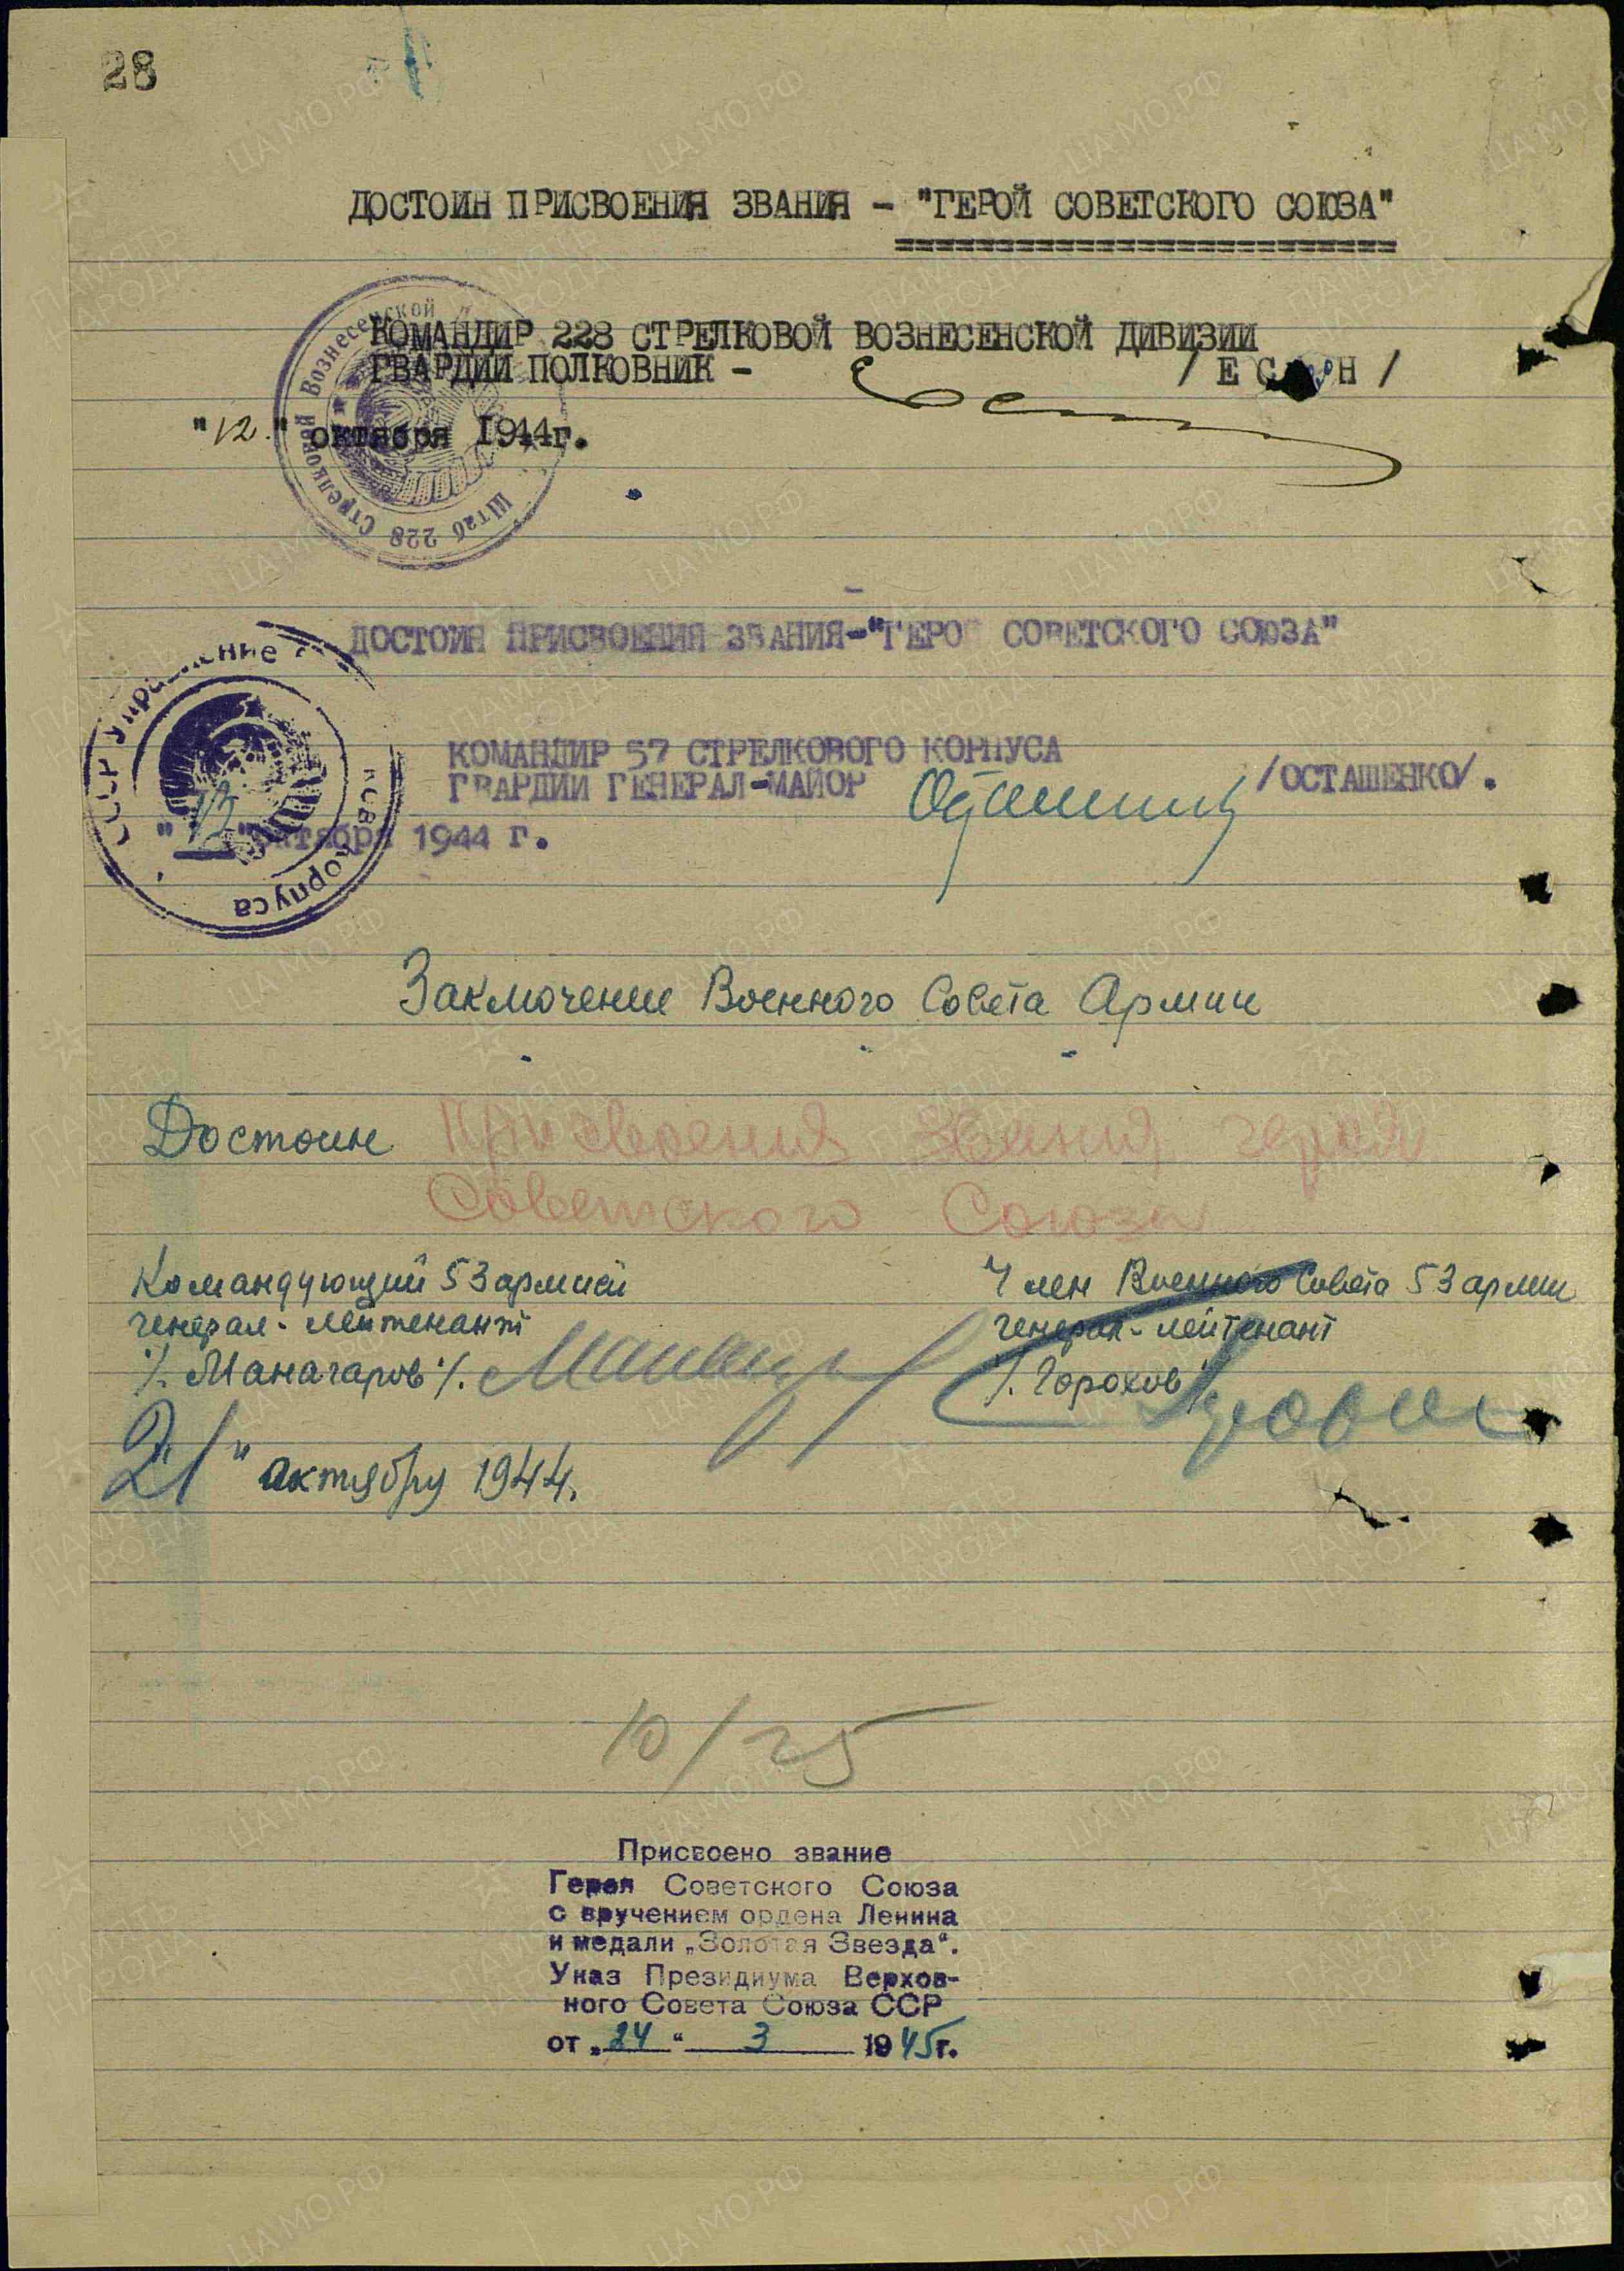 28
ДОСТОИН ПРИСВОЕНИЯ ЗВАНИЯ - "ГЕРОЙ СОВЕТСКОГО СОЮЗА"
КОМАНДИР 228 СТРЕЛКОВОЙ ВОЗНЕСЕНСКОЙ ДИВИЗИИ
ГВАРДИИ ПОЛКОВНИК - / ЕС Н /
"12." октября 1944г.
Штаб 228 Стрелковой Вознесенской
ДОСТОИН ПРИСВОЕНИЯ ЗВАНИЯ-"ГЕРО СОВЕТСКОГО СОЮЗА"
КОМАНДИР 57 СТРЕЛКОВОГО КОРПУСА
ГВАРДИИ ГЕНЕРАЛ-МАЙОР /ОСТАШЕНКО/.
октября 1944 г.
СССР Управление
корпуса
Заключение Военного Совета Армии
Достоин присвоения звания героя
Советского Союза
Командующий 53 армией
генерал-лейтенант
/. Манагаров ./.
Член Военного Совета 53 армии
генерал-лейтенант
/. Горохов
21" октября 1944.
10/25
Присвоено звание
Героя Советского Союза
с вручением ордена Ленина
и медали „Золотая Звезда“.
Указ Президиума Верхов-
ного Совета Союза ССР
от „24“ 3 1945г.
ЦА МО РФ
ПАМЯТЬ
НАРОДА